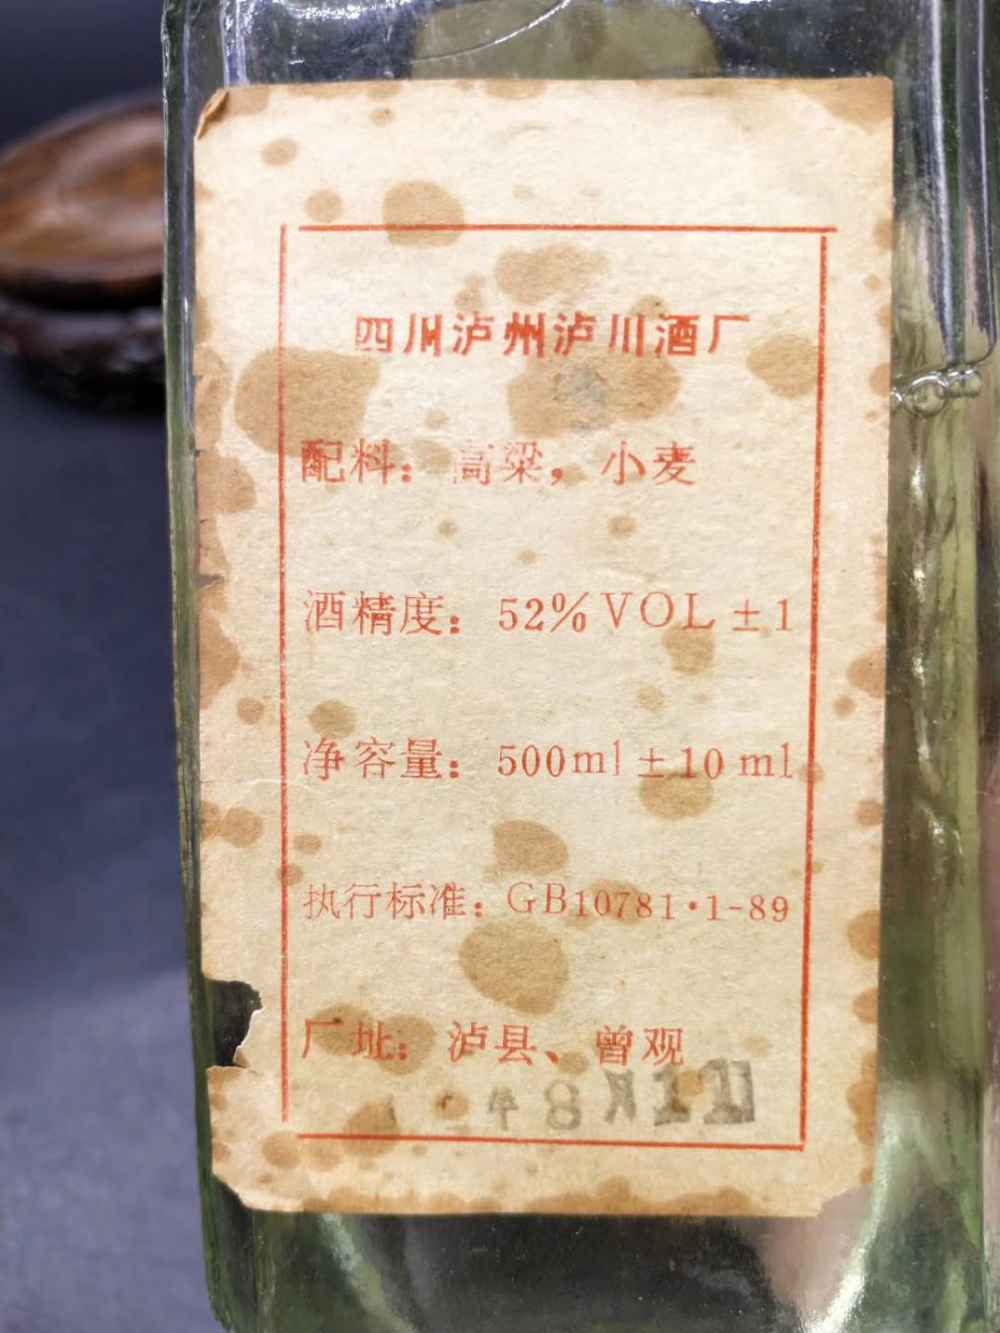 四川泸州泸川酒厂
配料：高粱，小麦
酒精度：52%VOL±1
净容量：500ml±10ml
执行标准：GB10781·1-89
厂址：泸县、曾观